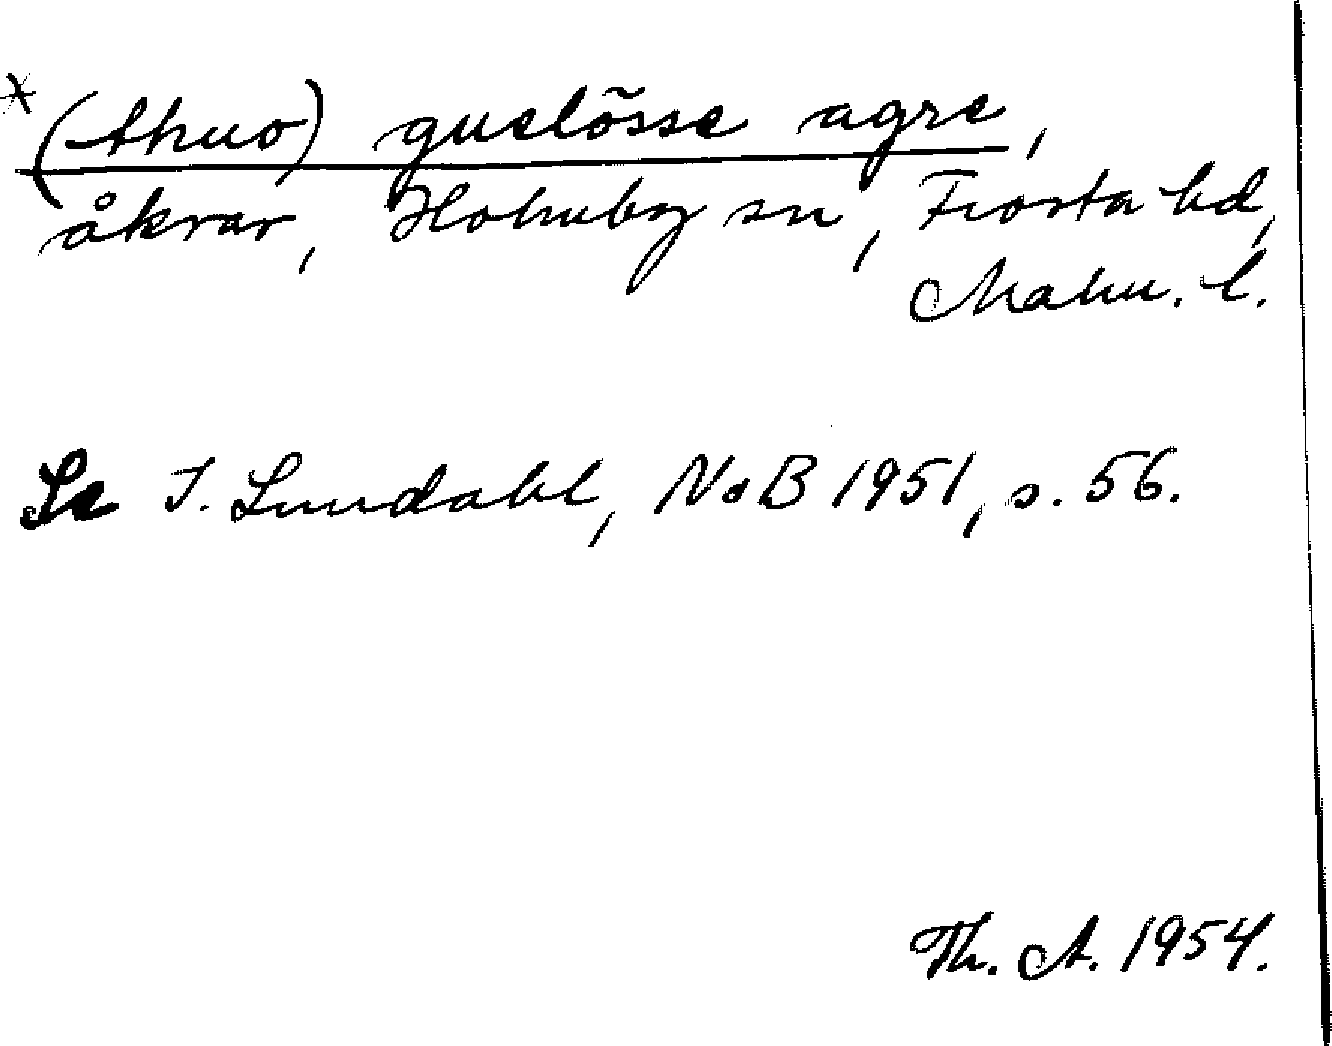 * (thuo) guslösse agre,
åkrar, Holmby sn, Frosta hd,
Malm. l.
Se I. Lundahl, NoB 1951, s. 56.
Th. A. 1954.